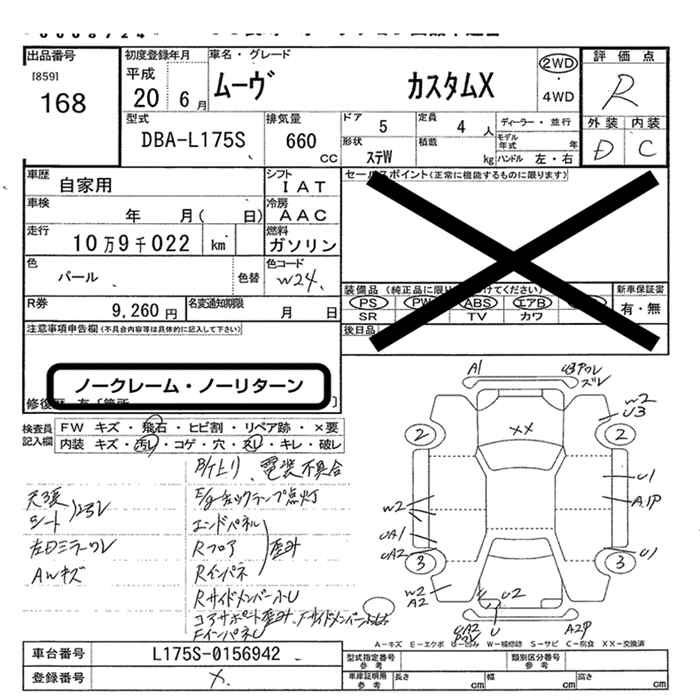 出品番号
[859]
168
初度登録年月
平成
20 6月
車名・グレード
ムーヴ カスタムX
2WD
・
4WD
評価点
R
外装 内装
D C
型式
DBA-L175S
排気量
660
CC
ドア
5
定員
4 人
ディーラー・並行
モデル年式 年
形状
ステW
積載
kg
ハンドル 左・右
車歴
自家用
シフト
IAT
セールスポイント(正常に機能するものに限ります)
車検
年 月( 日)
冷房
AAC
走行
10万9千022 km
燃料
ガソリン
色
パール
色替
色コード
W24
装備品
PS PW ABS エアB
SR TV カワ
新車保証書
有・無
R券
9,260円
名変通知期限
月 日
後日品
注意事項申告欄(不具合内容等は具体的に記入して下さい)
ノークレーム・ノーリターン
検査員記入欄
FW キズ・飛石・ヒビ割・リペア跡・×要
内装 キズ・汚レ・コゲ・穴・スレ・キレ・破レ
B/上リ、電装不具合
E/gチェックランプ点灯
天張
シート
エンドパネル
左Dミラーワレ
Rフロア
AWキズ
Rインパネ
RサイドメンバーふU
コアサポート歪み、
FインパネU
A1
W2
U3
2 ×× 2
U1
A1P
W2
UA1
UA2
3 3
U1
W2
A2
U2
U
A2P
A-キズ E-エクボ U-凹み W-補修跡 S-サビ C-腐食 XX-交換済
車台番号
L175S-0156942
登録番号
×
型式指定番号
参考
類別区分番号
参考
車庫証明用
参考
長さ cm 幅 cm 高さ cm